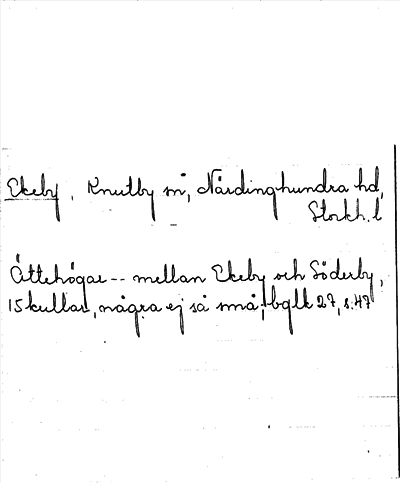 Ekeby, Knutby sn, Närdinghundra hd,
Stockh. l
Ättehögar -- mellan Ekeby och Söderby,
15 kullar, några ej så små, bglk 27, s. 47